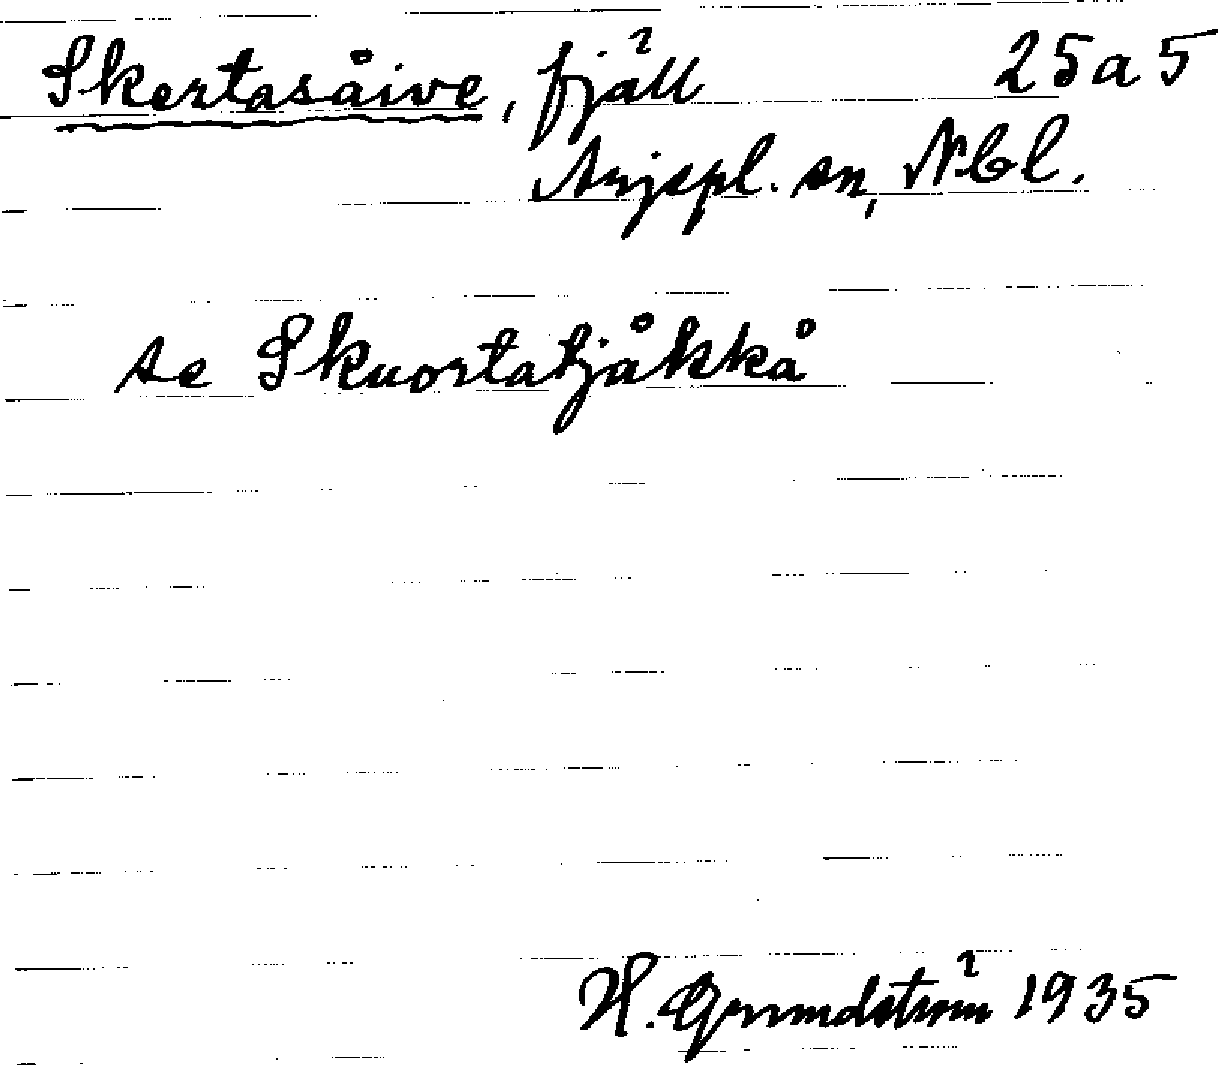 Skertasåive, fjäll 25a5
Arjepl. sn, Nbl.
se Skuortatjåkkå
H. Grundström 1935